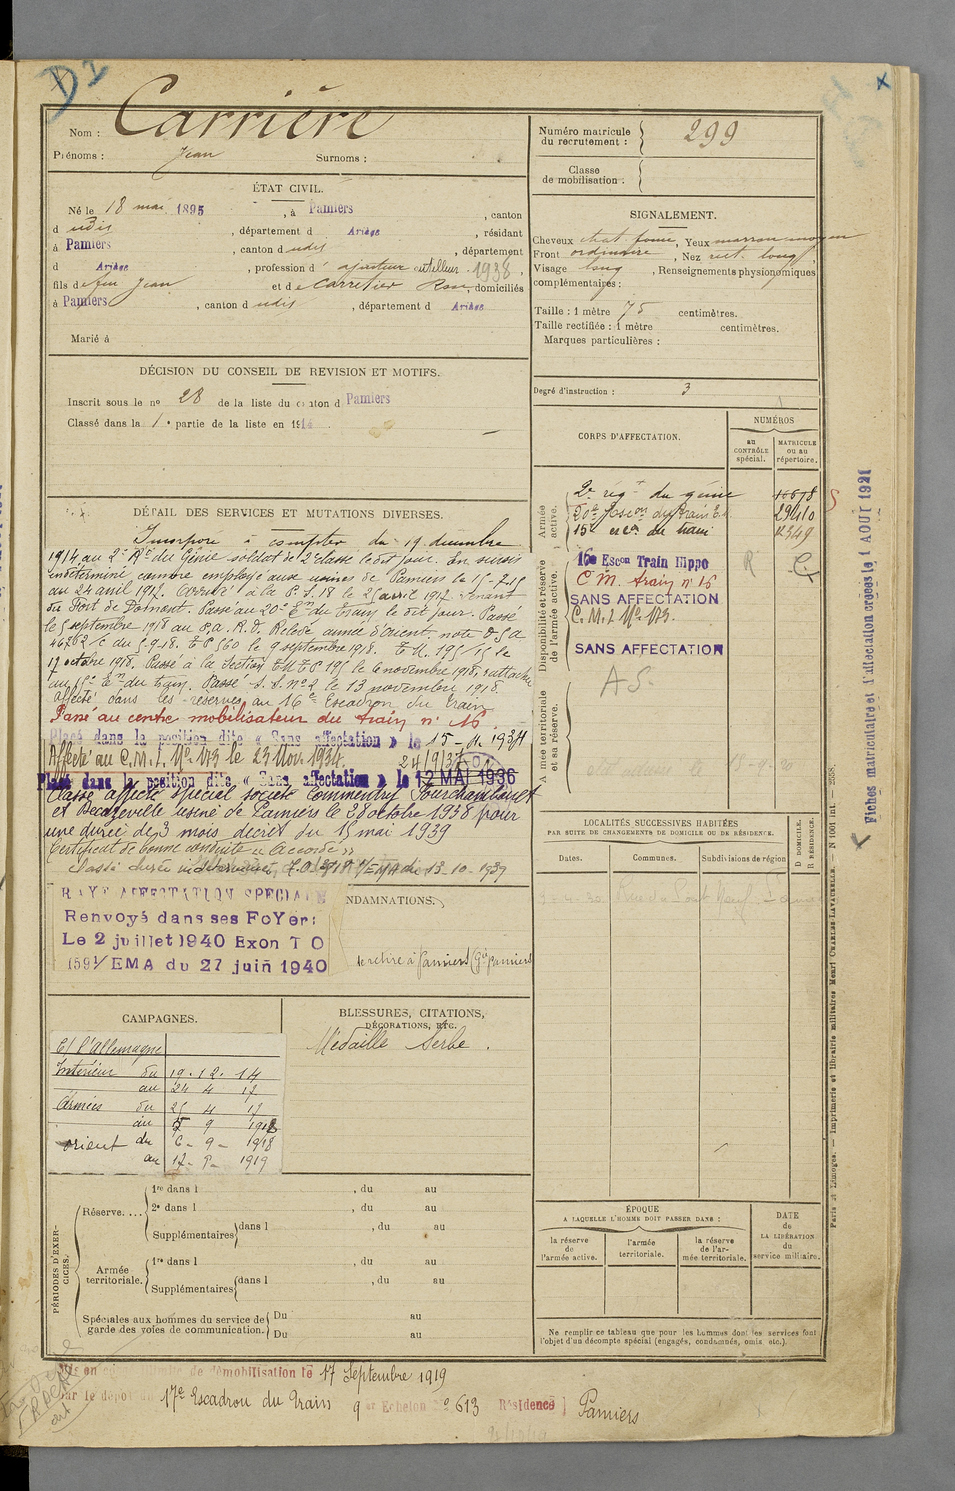 D2
Nom : Carrière
Prénoms : Jean Surnoms :
ÉTAT CIVIL.
Né le 18 mai 1895, à Pamiers, canton
d udis, département d Ariège, résidant
à Pamiers, canton d udis, département
d Ariège, profession d' ajusteur outilleur 1938,
fils de feu Jean et de Carretier Rose, domiciliés
à Pamiers, canton d udis, département d Ariège
Marié à
DÉCISION DU CONSEIL DE REVISION ET MOTIFS.
Inscrit sous le no 28 de la liste du canton d Pamiers
Classé dans la 1e partie de la liste en 1914.
DÉTAIL DES SERVICES ET MUTATIONS DIVERSES.
Incorporé à compter du 19 décembre
1914 au 2e Rt du Génie soldat de 2e classe le dit jour. En sursis
indéterminé comme employé aux usines de Pamiers le 15-7-15
au 24 avril 1917. à la P.S. 18 le 25 avril 1917. Venant
du Port de . Passé au 20e Em du train le dit jour. Passé
le 5 septembre 1918 au P.a. R.D. Relève armée d'orient. note
46762 C du 5-9-18. le 9 septembre 1918. le
17 octobre 1918. Passé à la Section 195 le 6 novembre 1918, rattaché
au 15e Em du train. Passé S.S. No 2 le 13 novembre 1918.
affecté dans les réserves au 16e Escadron du train
Passé au centre mobilisateur du train n° 16
Placé dans la position dite « Sans affectation » le 15-11-1934
Affecté au C.M.I. No 173 le 23 Nov. 1934. 24/9/37
Placé dans la position dite « Sans affectation » le 12 MAI 1936
Classé affecté spécial société Commentry Fourchambault
et Decazeville usine de Pamiers le 20 octobre 1938 pour
une durée de 3 mois décret du 15 mai 1939
Certificat de bonne conduite « accordé »
Classé durée indéterminée, T.O. /EMA du 13-10-1939
RAYÉ AFFECTATION SPECIALE
Renvoyé dans ses FoYer:
Le 2 juillet 1940 Exon T O
1591/EMA du 27 juin 1940
NDAMNATIONS.
se retire à Pamiers (Gie Pamiers
CAMPAGNES.
C/ l'Allemagne
Intérieur du 19.12.14
au 24 4 17
Armées du 25 4 17
au 5 9 1918
orient du 6-9-1918
au 17-8-1919
BLESSURES, CITATIONS,
DÉCORATIONS, ETC.
Médaille Serbe.
PÉRIODES D'EXERCICES.
Réserve....
1re dans l , du au
2e dans l , du au
Supplémentaires dans l , du au
Armée territoriale.
1re dans l , du au
Supplémentaires dans l , du au
Spéciales aux hommes du service de
garde des voies de communication.
Du au
Du au
Mis en de démobilisation le 17 Septembre 1919
par le dépôt du 17e Escadron du Train er Echelon No 613 Résidence Pamiers
Numéro matricule
du recrutement : 299
Classe
de mobilisation :
SIGNALEMENT.
Cheveux chat. foncé, Yeux marron moyen
Front ordinaire, Nez rect. long,
Visage long, Renseignements physionomiques
complémentaires :
Taille : 1 mètre 75 centimètres.
Taille rectifiée : 1 mètre centimètres.
Marques particulières :
Degré d'instruction : 3
CORPS D'AFFECTATION.
NUMÉROS
au CONTRÔLE spécial.
MATRICULE ou au répertoire.
Armée active.
2e régt du génie 16678
20e Escon du train E.M. 29410
15e escon du train 7349
Disponibilité et réserve de l'armée active.
16e Escon Train Hippo
C M. train n° 16
SANS AFFECTATION
C.M.I. No 173.
SANS AFFECTATION
Armée territoriale et sa réserve.
A.S.
LOCALITÉS SUCCESSIVES HABITÉES
PAR SUITE DE CHANGEMENTS DE DOMICILE OU DE RÉSIDENCE.
D DOMICILE.
R RÉSIDENCE.
Dates. Communes. Subdivisions de région
Rue du Pont Neuf
ÉPOQUE
A LAQUELLE L'HOMME DOIT PASSER DANS :
la réserve de l'armée active.
l'armée territoriale.
la réserve de l'armée territoriale.
DATE
de
LA LIBÉRATION
du
service militaire.
Ne remplir ce tableau que pour les hommes dont les services font
l'objet d'un décompte spécial (engagés, condamnés, omis etc.).
Paris et Limoges. — Imprimerie et librairie militaires Henri CHARLES-LAVAUZELLE. — N 1001 int. — 2558.
Fiches matriculaire et d'affectation créées le 1 AOUT 1921